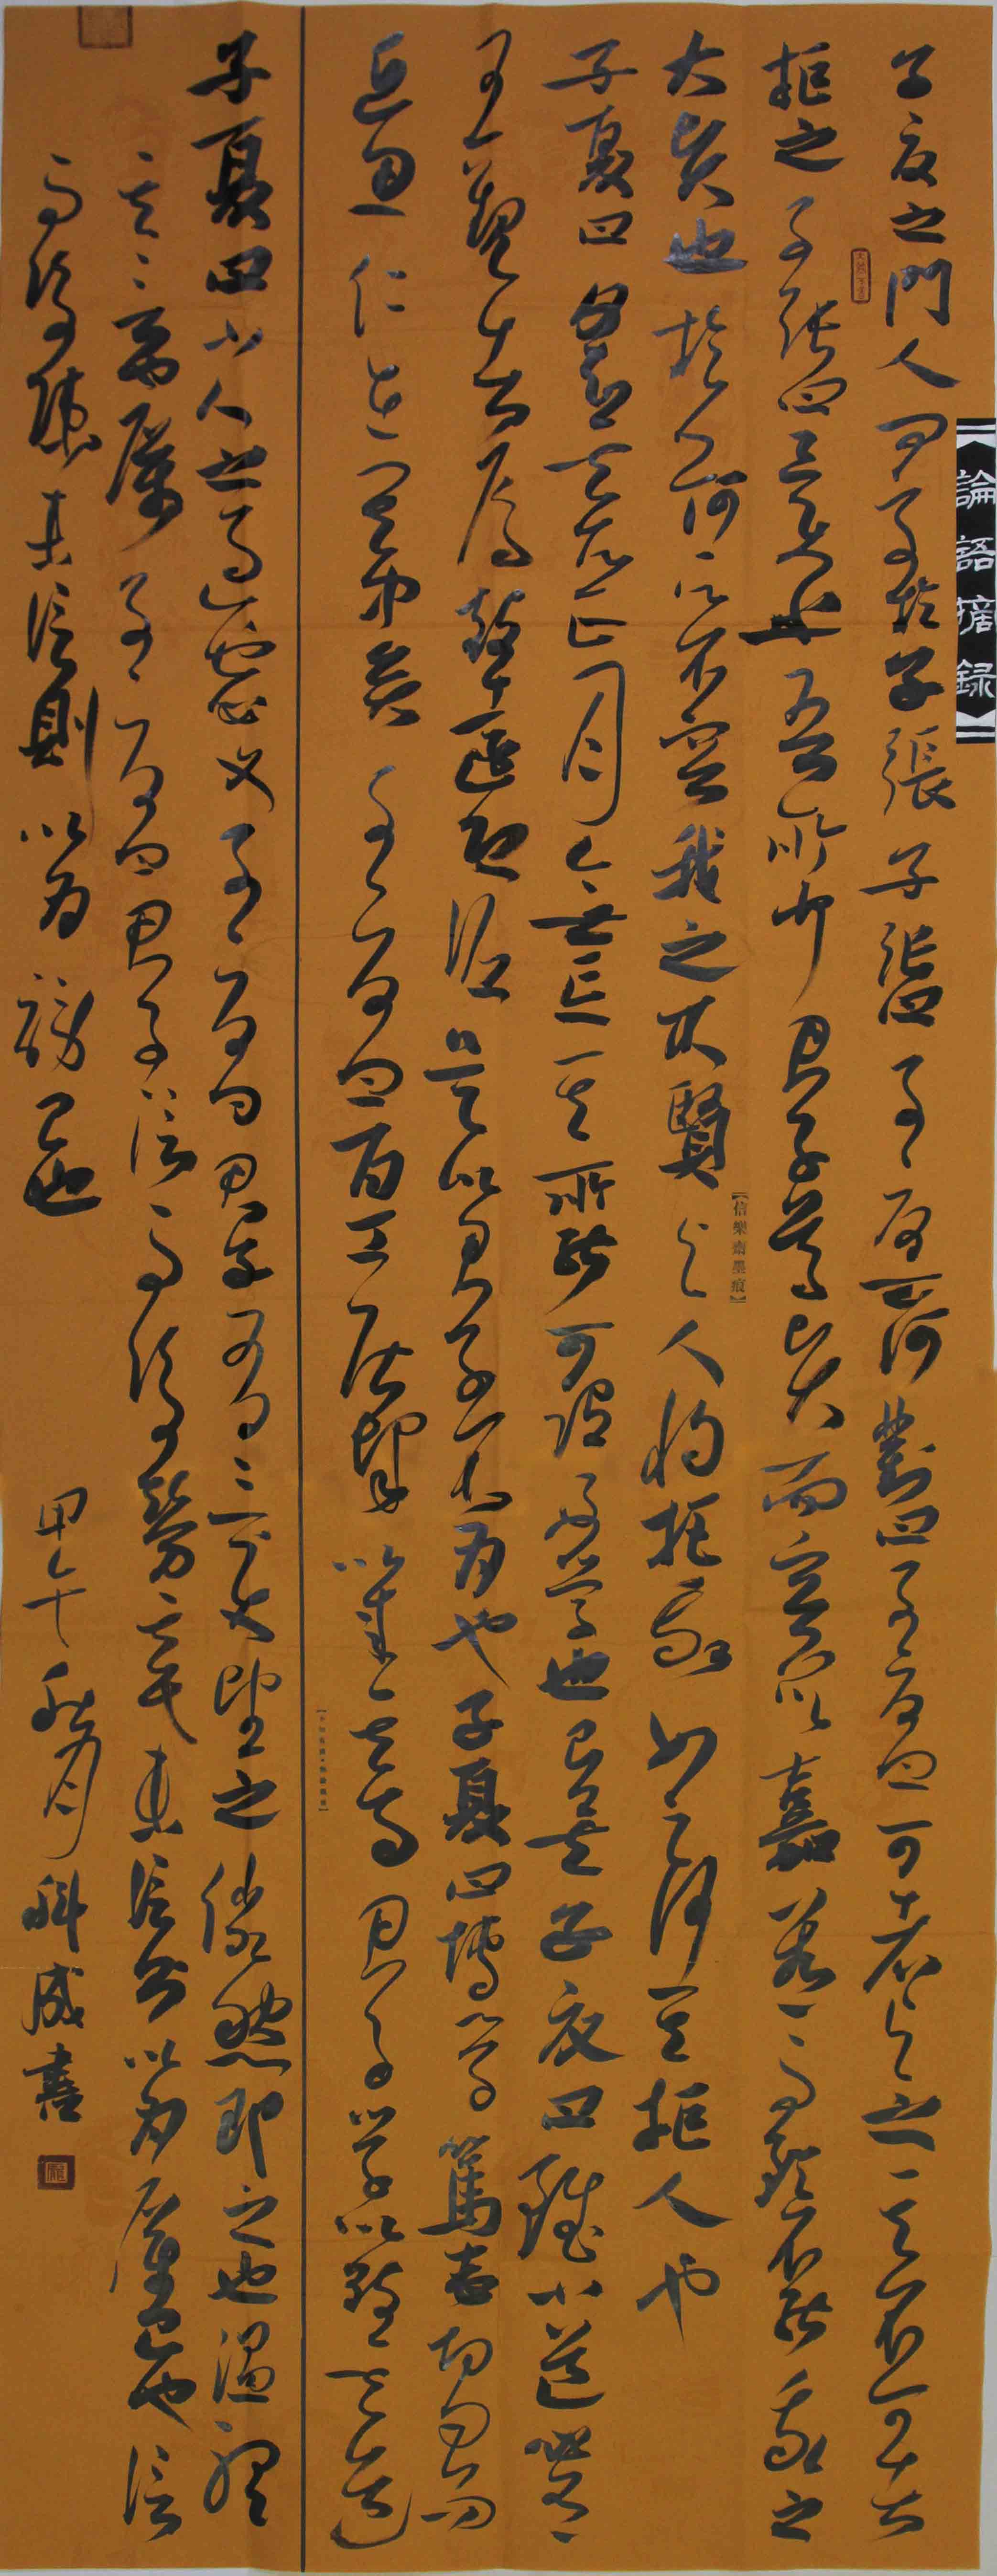 論語摘録
子夏之門人問交於子張子張曰子夏云何對曰子夏曰可者與之其不可者
拒之子張曰異乎吾所聞君子尊賢而容眾嘉善而矜不能我之
大賢也於人何所不容我之不賢與人將拒我如之何其拒人也
信樂齋墨痕
子夏曰日知其所亡月無忘其所能可謂好學也已矣子夏曰雖小道必有
可觀者焉致遠恐泥是以君子不為也子夏曰博學而篤志切問而
近思仁在其中矣子夏曰百工居肆以成其事君子學以致其道
子夏曰小人之過也必文子夏曰君子有三變望之儼然即之也溫聽
其言也厲子夏曰君子信而後勞其民未信則以為厲己也信
而後諫未信則以為謗己也甲午秋月科成書